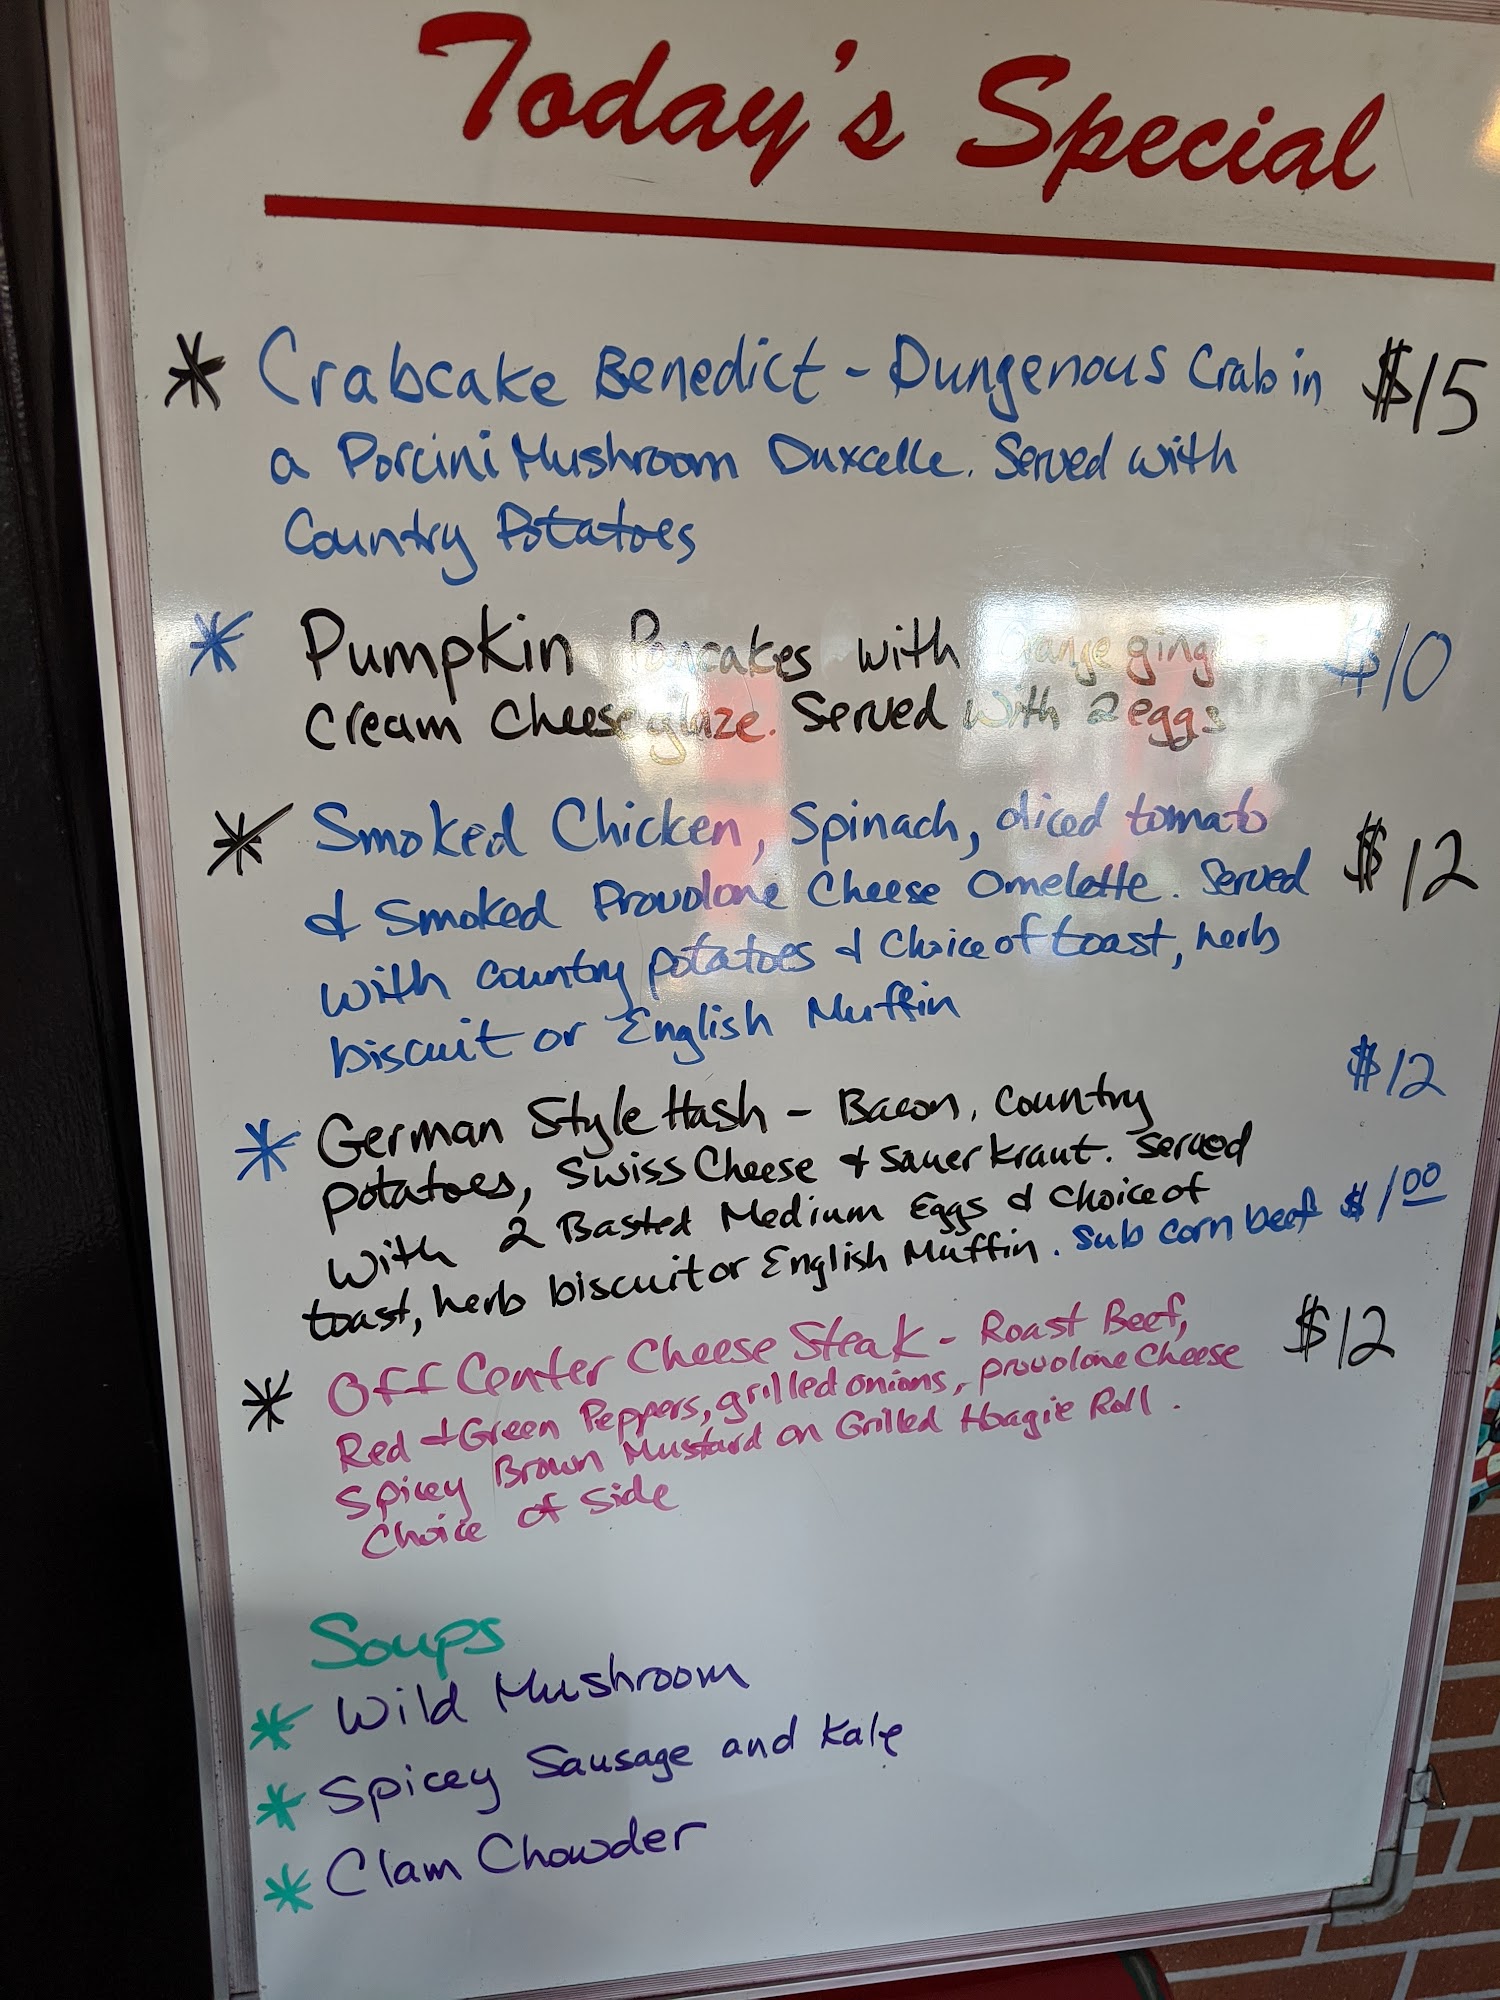 Today's Special
* Crabcake Benedict - Dungenous Crab in $15
a Porcini Mushroom Duxcelle. Served with
Country Potatoes
* Pumpkin Pancakes with Orange ging $10
Cream Cheese glaze. Served with 2 eggs
* Smoked Chicken, Spinach, diced tomato
& Smoked Provolone Cheese Omelette. Served $12
with country potatoes & choice of toast, herb
biscuit or English Muffin
* German Style Hash - Bacon, Country $12
potatoes, Swiss Cheese & Sauerkraut. Served
with 2 Basted Medium Eggs & choice of
toast, herb biscuit or English Muffin. Sub corn beef $1.00
* Off Center Cheese Steak - Roast Beef, $12
Red & Green Peppers, grilled onions, provolone Cheese
Spicey Brown Mustard on Grilled Hoagie Roll.
Choice of Side
Soups
* Wild Mushroom
* Spicey Sausage and Kale
* Clam Chowder